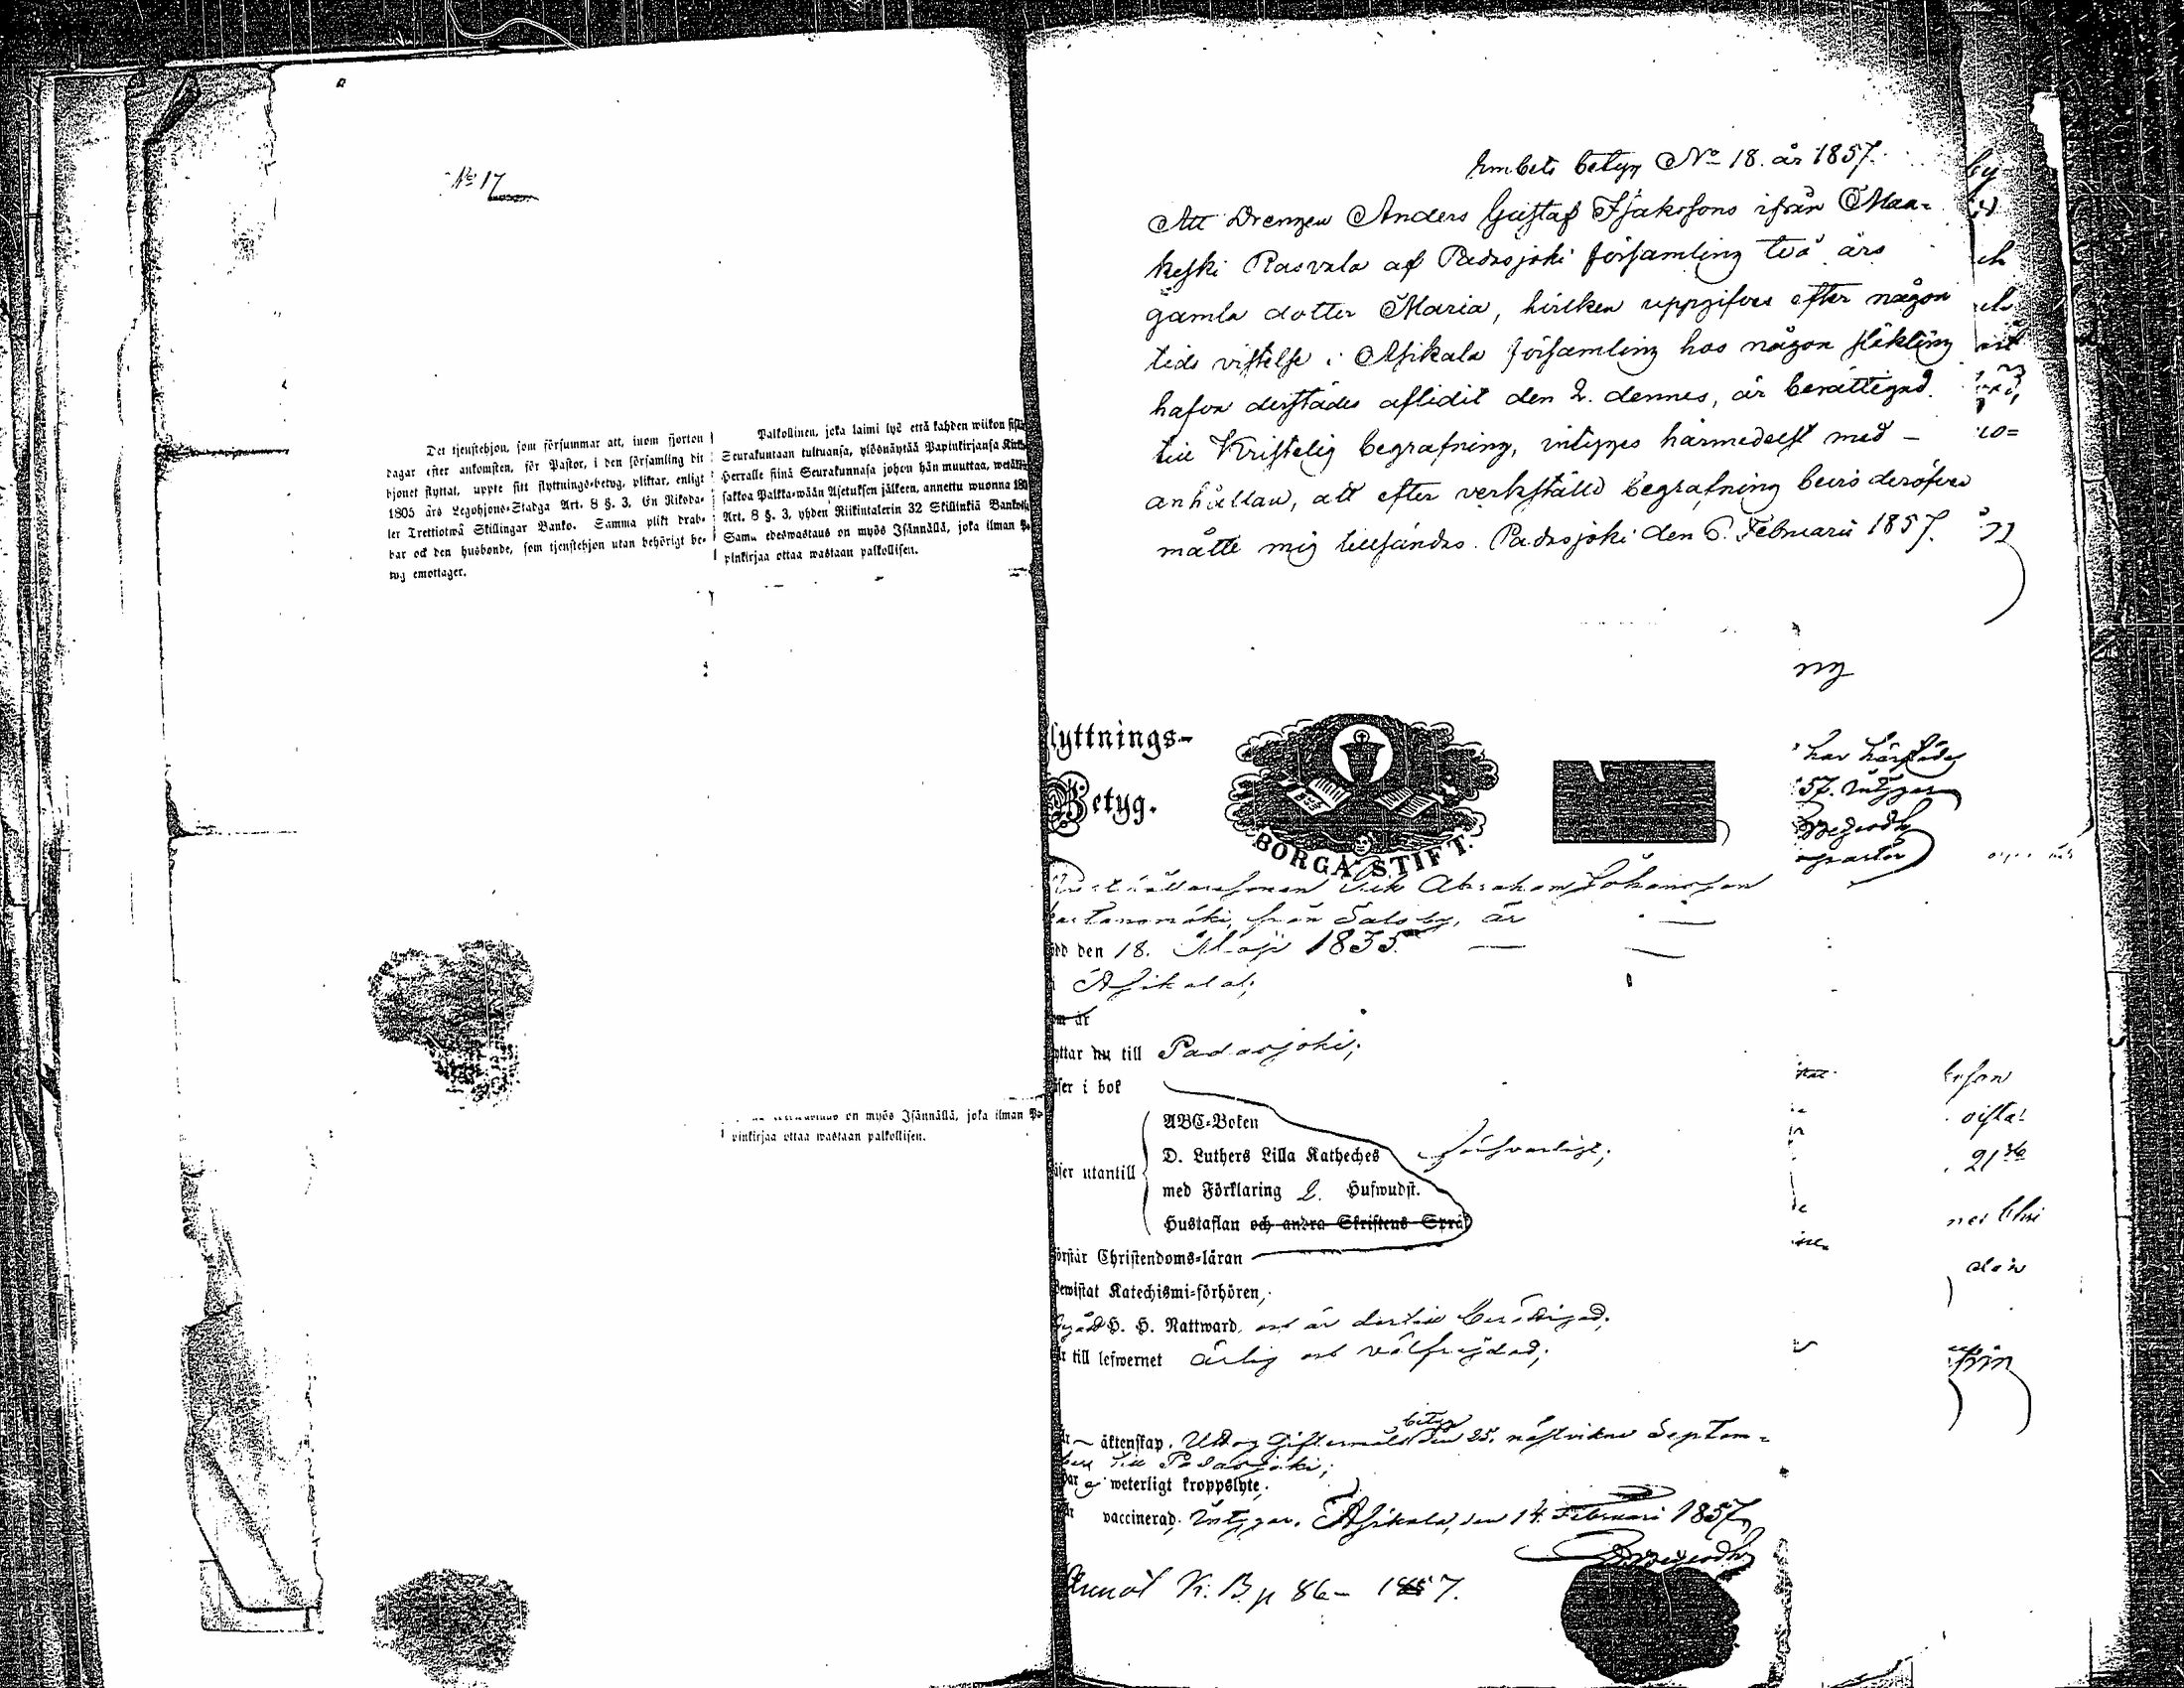 No 17
Det tjenstehjon, som försummar att, inom fjorton
dagar efter ankomsten, för Pastor, i den församling dit
hjonet flyttat, uppte sitt flyttnings-betyg, pliktar, enligt
1805 års Legohjons-Stadga Art. 8 §. 3. En Riksda-
ler Trettiotwå Skillingar Banko. Samma plikt drab-
bar ock den husbonde, som tjenstehjon utan behörigt be-
tyg emottager.
Palkollinen, joka laimi lyö että kahden wiikon
Seurakuntaan tultuansa, ylösnäyttää Papinkirjansa
Herralle siinä Seurakunnasa johon hän muuttaa,
sakkoa Palkka-wään Asetuksen jälkeen, annettu wuonna
Art. 8 §. 3, yhden Riikintalerin 32 Skillinkiä
edeswastaus on myös Isännällä, joka ilman Pa-
pinkirjaa ottaa wastaan palkollisen.
on myös Isännällä, joka ilman Pa-
pinkirjaa ottaa wastaan palkollisen.
Embets betyg No 18. år 1857.
Att Drengen Anders Gustaf Isakssons ifrån Maa-
keski Rasvala af Padasjoki församling två års
gamla dotter Maria, hvilken uppgifves efter någon
tids vistelse i Asikala församling hos någon släkting
hafva derstädes aflidit den 2. dennes, är berättigad
till Kristelig begrafning, intygas härmedelst med –
anhållan, att efter verkställd begrafning bevis deröfver
måtte mig tillsändas. Padasjoki den 6. Februarii 1857.
ng
har härstädes
57. intygar
lyttnings-
Betyg.
BORGÅ STIFT.
Erik Abraham Johansson
från Salo by, är
den 18. Maji 1835.
i Asikala;
om är
yttar nu till Padasjoki;
äser i bok
ABC-Boken
D. Luthers Lilla Katheches försvarligt;
äser utantill
med Förklaring 2. Hufwudst.
Hustaflan och andra Skriftens Språk
örstår Christendoms-läran
bewistat Katechismi-förhören,
H. H. Nattward, och är dertill berättigad;
är till lefwernet ärlig och välfrejdad;
äktenskap. Uttog Giftermåls betyg den 25. nästvikne Septem-
ber till Padasjoki;
har ej weterligt kroppslyte;
är vaccinerad; Intygar. Asikala, den 14. Februari 1857.
Annot K. B. p 86 – 1857.